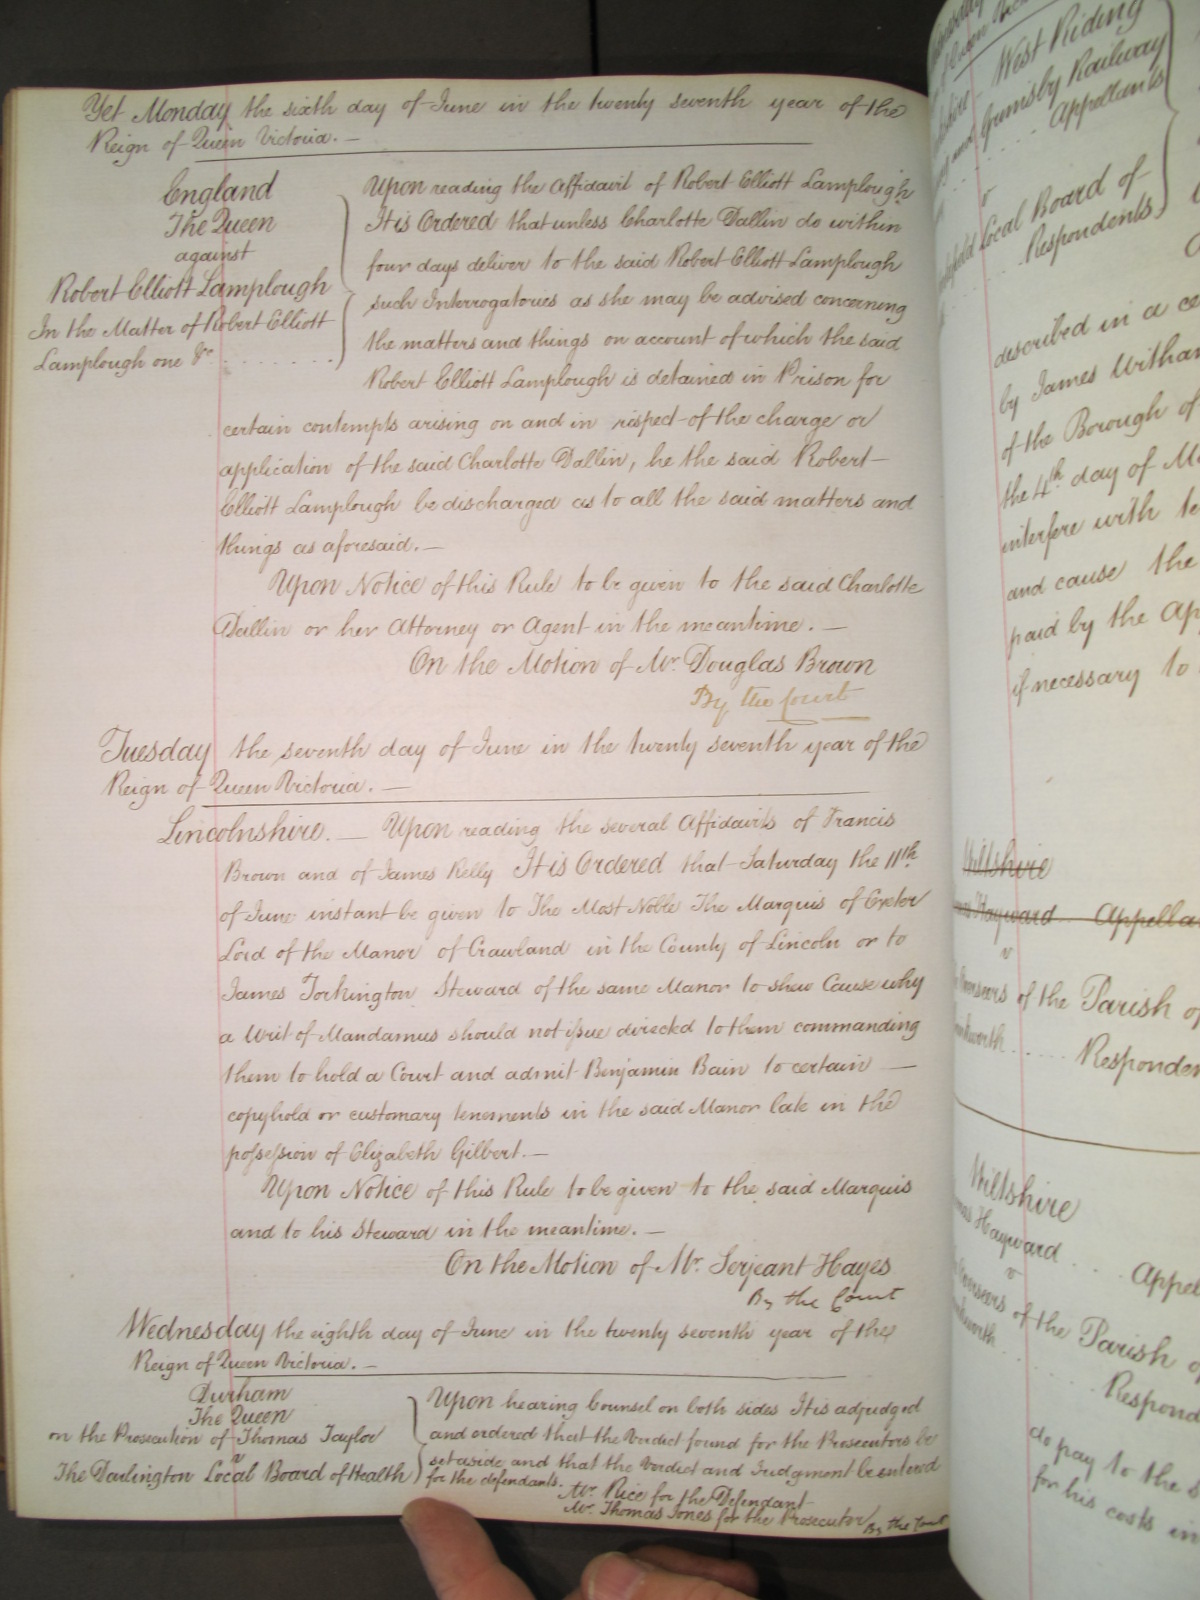 Yet Monday the sixth day of June in the twenty seventh year of the
Reign of Queen Victoria. —
England
The Queen
against
Robert Elliott Lamplough
In the Matter of Robert Elliott
Lamplough one &c. . . . . . . . .
Upon reading the Affidavit of Robert Elliott Lamplough
It is Ordered that unless Charlotte Dallin do within
four days deliver to the said Robert Elliott Lamplough
such Interrogatories as she may be advised concerning
the matters and things on account of which the said
Robert Elliott Lamplough is detained in Prison for
certain contempts arising on and in respect of the charge or
application of the said Charlotte Dallin, he the said Robert —
Elliott Lamplough be discharged as to all the said matters and
things as aforesaid. —
Upon Notice of this Rule to be given to the said Charlotte
Dallin or her Attorney or Agent in the meantime. —
On the Motion of Mr. Douglas Brown
By the Court
Tuesday the seventh day of June in the twenty seventh year of the
Reign of Queen Victoria. —
Lincolnshire. — Upon reading the several Affidavits of Francis
Brown and of James Kelly It is Ordered that Saturday the 11th
of June instant be given to The Most Noble The Marquis of Exeter
Lord of the Manor of Crowland in the County of Lincoln or to
James Torkington Steward of the same Manor to shew Cause why
a Writ of Mandamus should not issue directed to them commanding
them to hold a Court and admit Benjamin Bain to certain —
copyhold or customary tenements in the said Manor late in the
possession of Elizabeth Gilbert. —
Upon Notice of this Rule to be given to the said Marquis
and to his Steward in the meantime. —
On the Motion of Mr. Serjeant Hayes
By the Court
Wednesday the eighth day of June in the twenty seventh year of the
Reign of Queen Victoria. —
Durham
The Queen
on the Prosecution of Thomas Taylor
v
The Darlington Local Board of Health
Upon hearing Counsel on both sides It is adjudged
and ordered that the Verdict found for the Prosecutors be
set aside and that the Verdict and Judgment be entered
for the defendants.
Mr. Rice for the Defendant
Mr. Thomas Jones for the Prosecutor
By the Court
West Riding
and Grimsby Railway
Appellants
v
Local Board of
Respondents
described in a
by James
of the Borough of
the 4th day of
interfere with
and cause the
paid by the
if necessary to
Wiltshire
Hayward
v
of the Parish of
Wiltshire
Hayward . . . .
v
of the Parish of
do pay to the
for his costs in